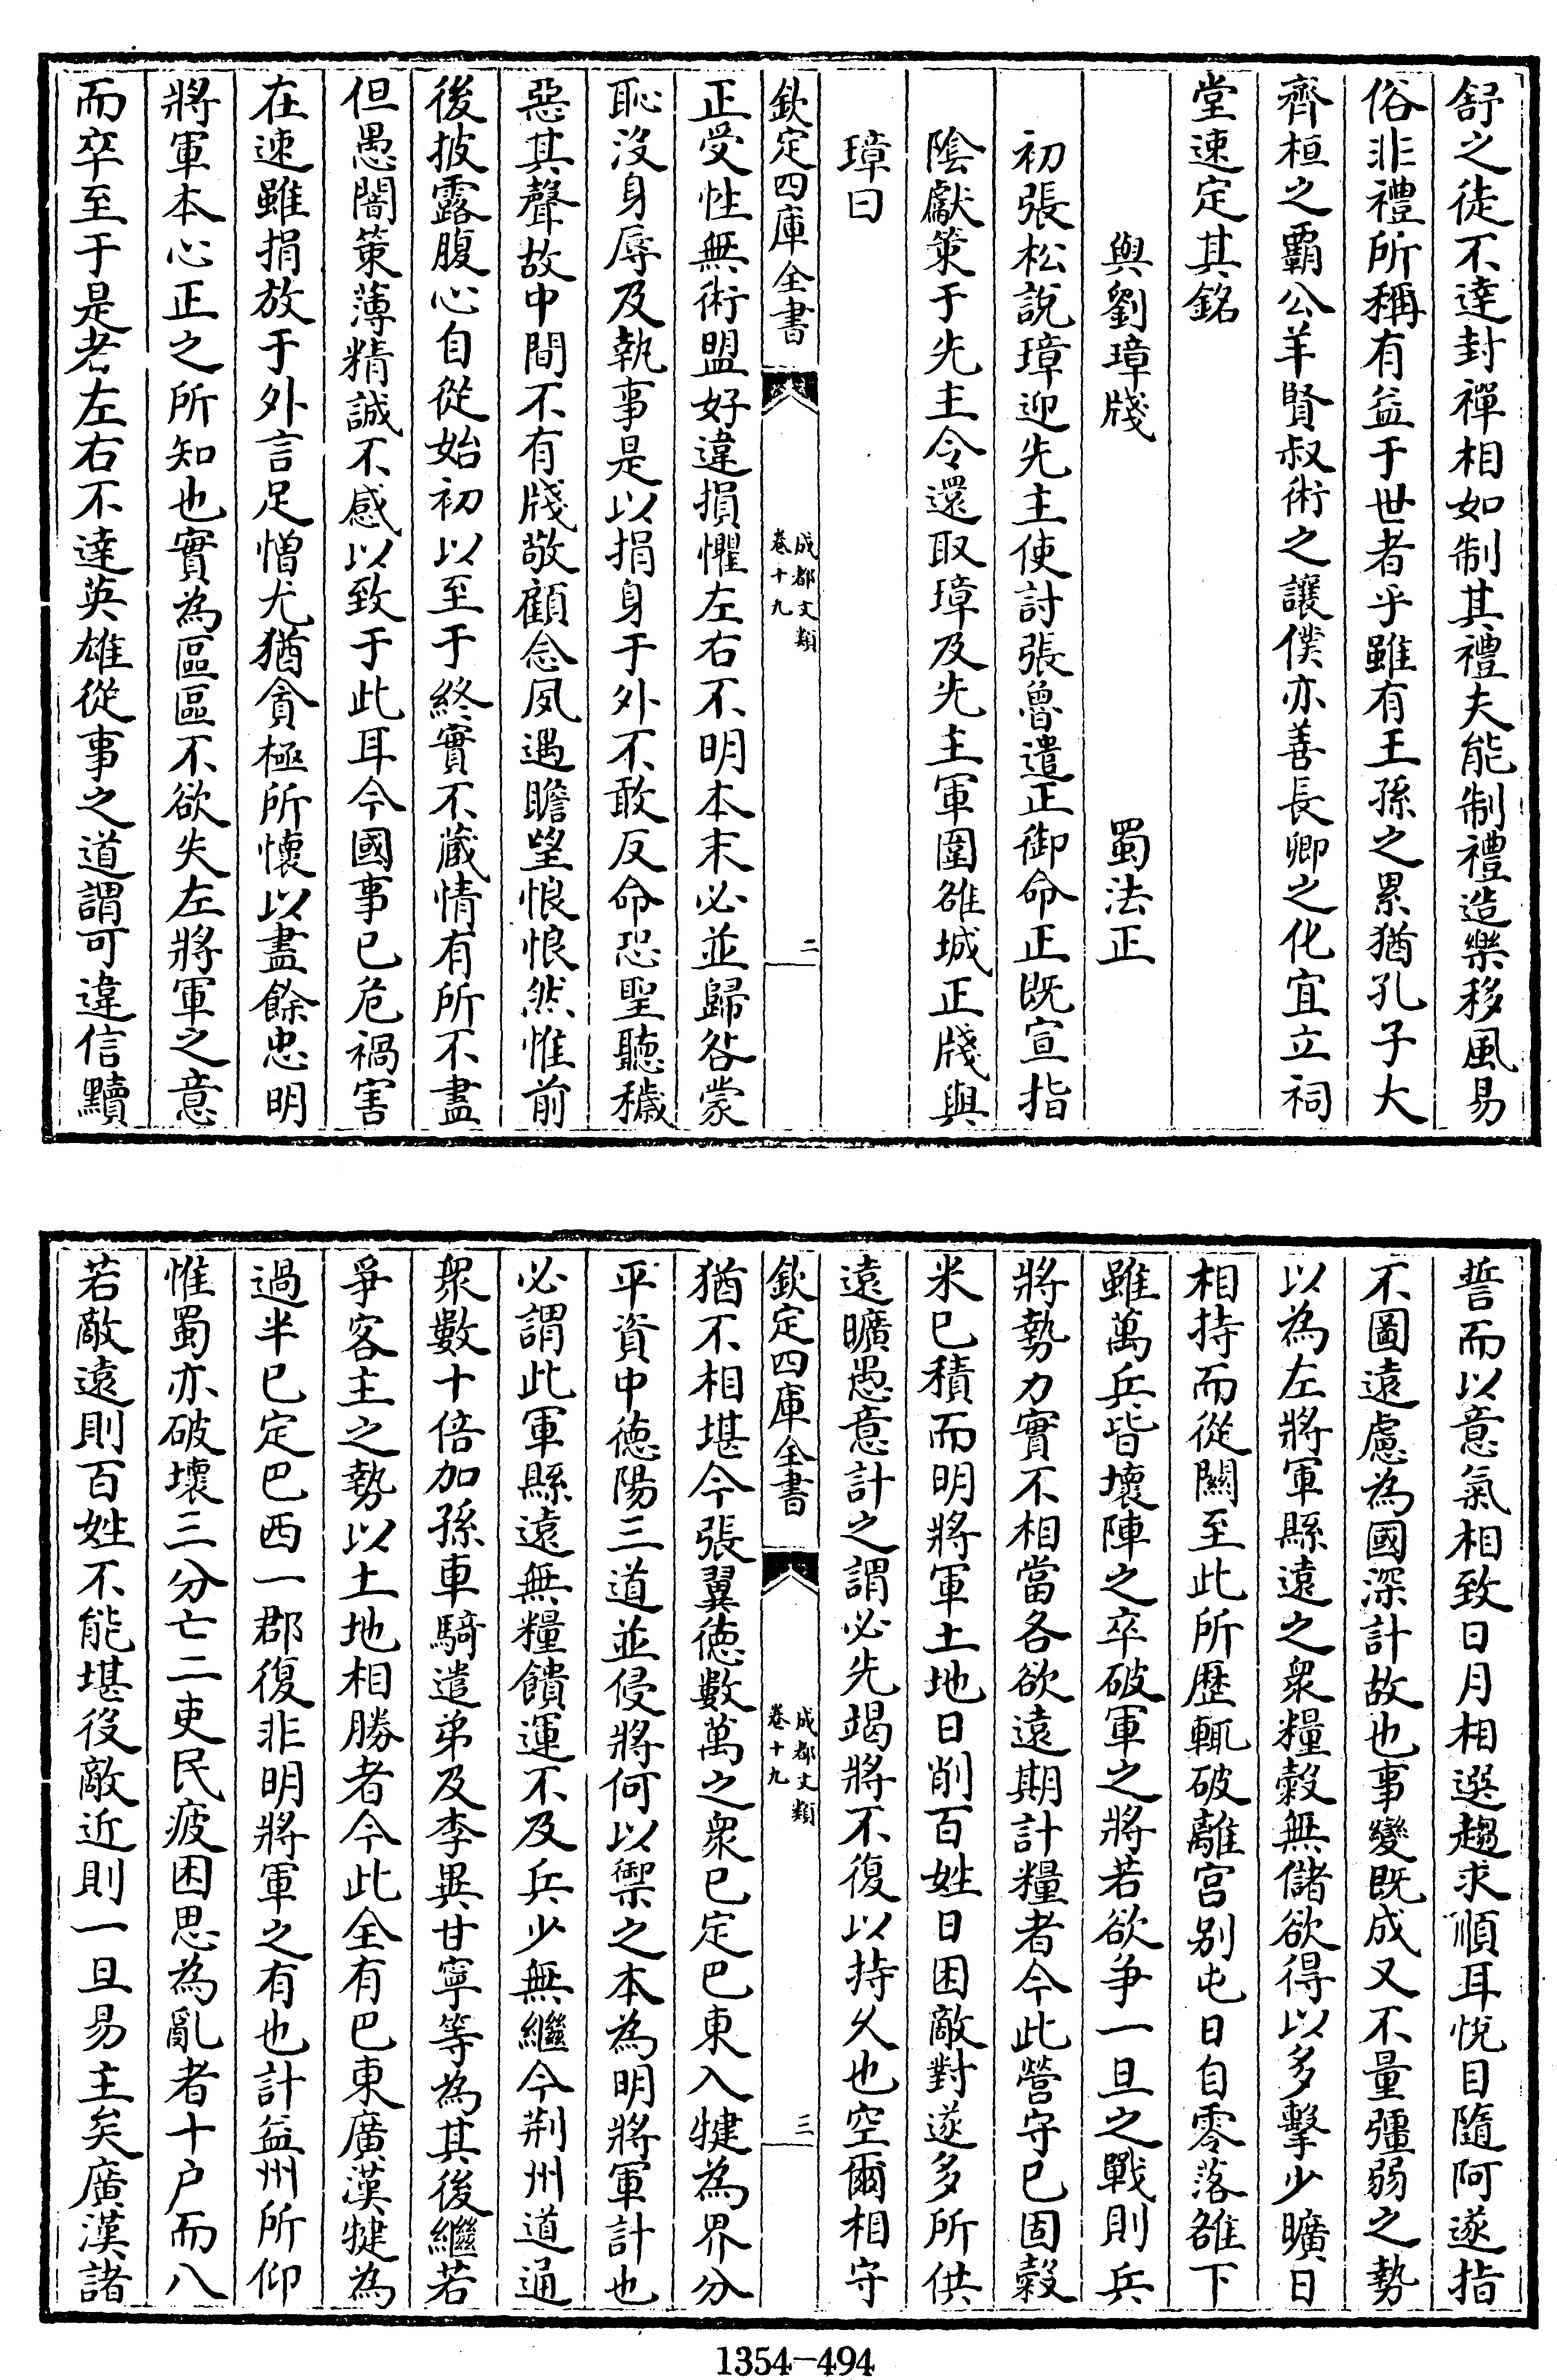 舒之徒不達封禪相如制其禮夫能制禮造樂移風易
俗非禮所稱有益于世者乎雖有王孫之累猶孔子大
齊桓之霸公羊賢叔術之讓僕亦善長卿之化宜立祠
堂速定其銘
與劉璋牋 蜀法正
初張松說璋迎先主使討張魯遣正御命正既宣指
陰獻策于先主令還取璋及先主軍圍雒城正牋與
璋曰
欽定四庫全書 成都文類 卷十九 二
正受性無術盟好違損懼左右不明本末必並歸咎蒙
恥沒身辱及執事是以捐身于外不敢反命恐聖聽穢
惡其聲故中間不有牋敬顧念夙遇瞻望悢悢然惟前
後披露腹心自從始初以至于終實不藏情有所不盡
但愚闇策薄精誠不感以致于此耳今國事已危禍害
在速雖捐放于外言足憎尤猶貪極所懷以盡餘忠明
將軍本心正之所知也實為區區不欲失左將軍之意
而卒至于是者左右不達英雄從事之道謂可違信黷
誓而以意氣相致日月相選趨求順耳悅目隨阿遂指
不圖遠慮為國深計故也事變既成又不量彊弱之勢
以為左將軍縣遠之衆糧榖無儲欲得以多擊少曠日
相持而從關至此所歴輒破離宮别屯日自零落雒下
雖萬兵皆壞陣之卒破軍之將若欲争一旦之戰則兵
將勢力實不相當各欲遠期計糧者今此營守已固榖
米已積而明將軍土地日削百姓日困敵對遂多所供
遠曠愚意計之謂必先竭將不復以持久也空爾相守
欽定四庫全書 成都文類 卷十九 三
猶不相堪今張翼德數萬之衆已定巴東入犍為界分
平資中德陽三道並侵將何以禦之本為明將軍計也
必謂此軍縣遠無糧饋運不及兵少無繼今荆州道通
衆數十倍加孫車騎遣弟及李異甘寧等為其後繼若
爭客主之勢以土地相勝者今此全有巴東廣漢犍為
過半已定巴西一郡復非明將軍之有也計益州所仰
惟蜀亦破壞三分亡二吏民疲困思為亂者十户而八
若敵遠則百姓不能堪役敵近則一旦易主矣廣漢諸
1354-494